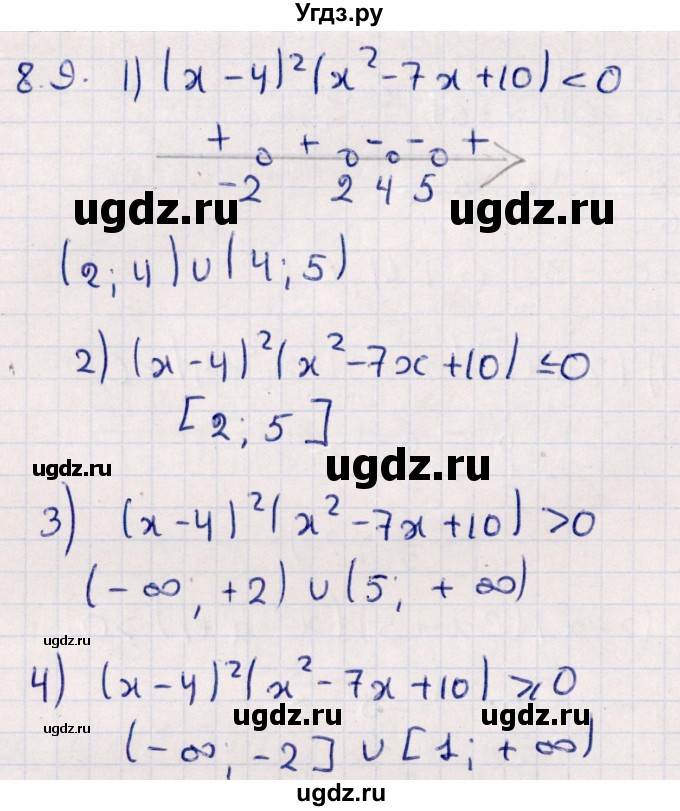 Угдз.ру
8.9. 1) (x-4)²(x²-7x+10) < 0
+ + - - +
-2 2 4 5
ugdz.ru ugdz.ru
(2; 4) ∪ (4; 5)
2) (x-4)²(x²-7x+10) ≤ 0
[2; 5]
ugdz.ru ugdz.ru
3) (x-4)²(x²-7x+10) > 0
(-∞; +2) ∪ (5; +∞)
ugdz.ru
4) (x-4)²(x²-7x+10) ≥ 0
ugdz.ru ugdz.ru ugdz.ru
(-∞; -2] ∪ [1; +∞)
ugdz.ru